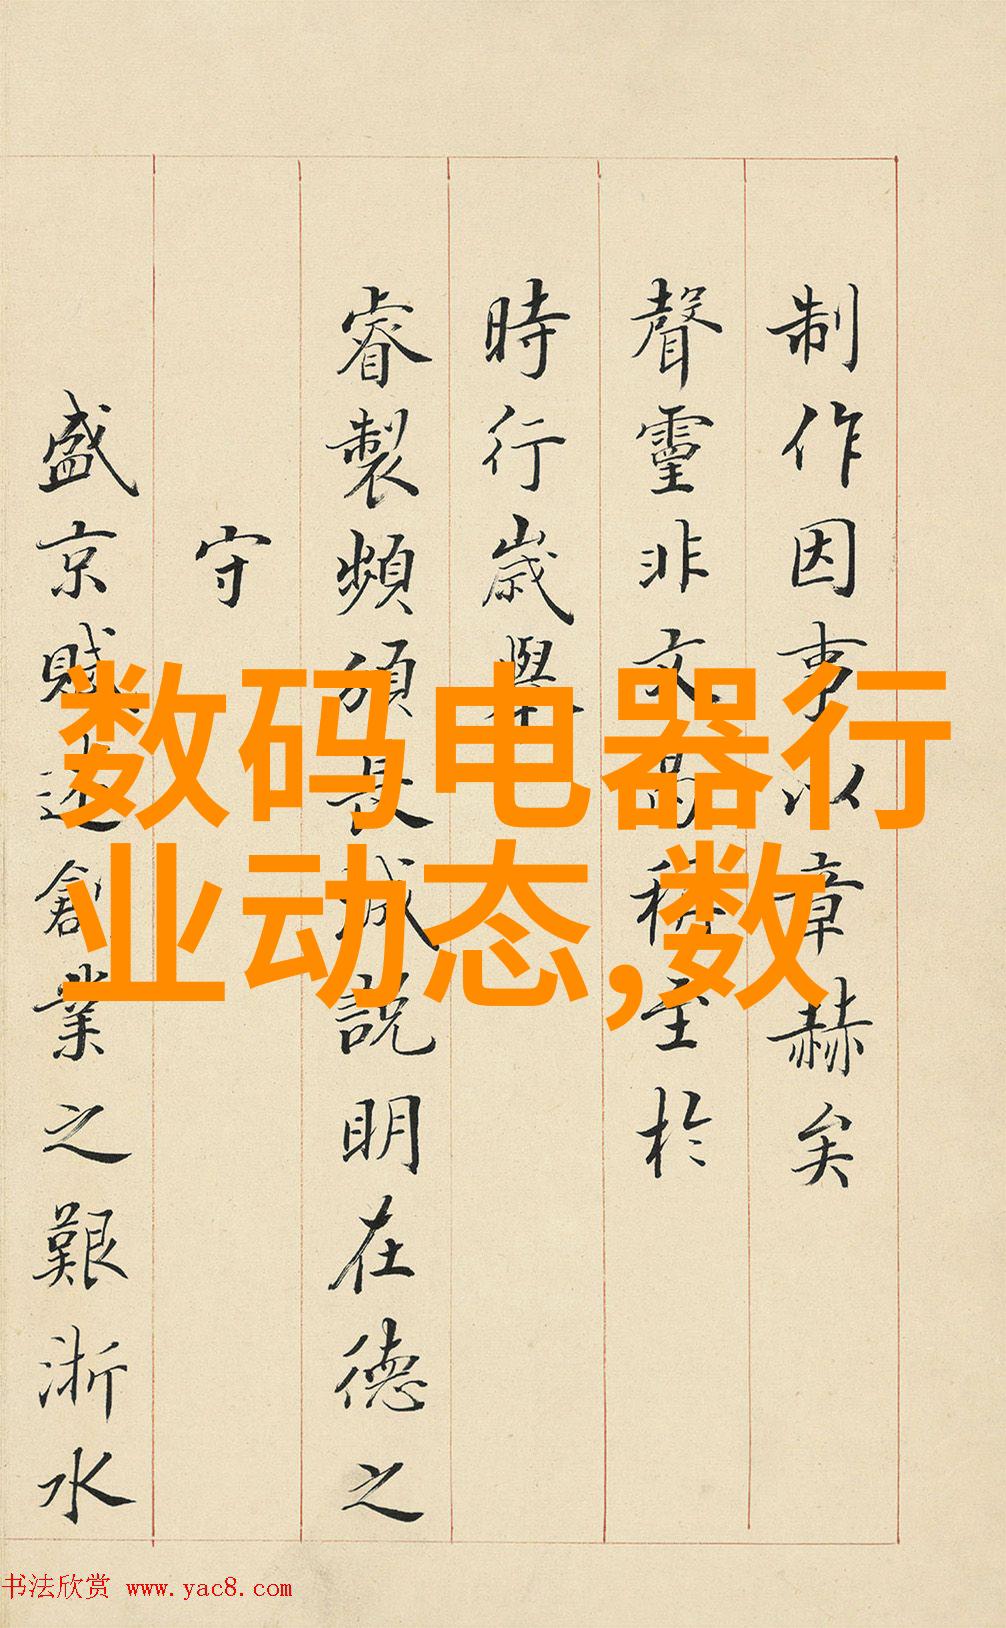 制作因事以章赫矣
聲靈非文為稱至於
時行歲舉
睿製頻頒長城說明在德之
守
盛京賦述創業之艱浙水
数码电器行
业动态,数
书法欣赏 www.yac8.com